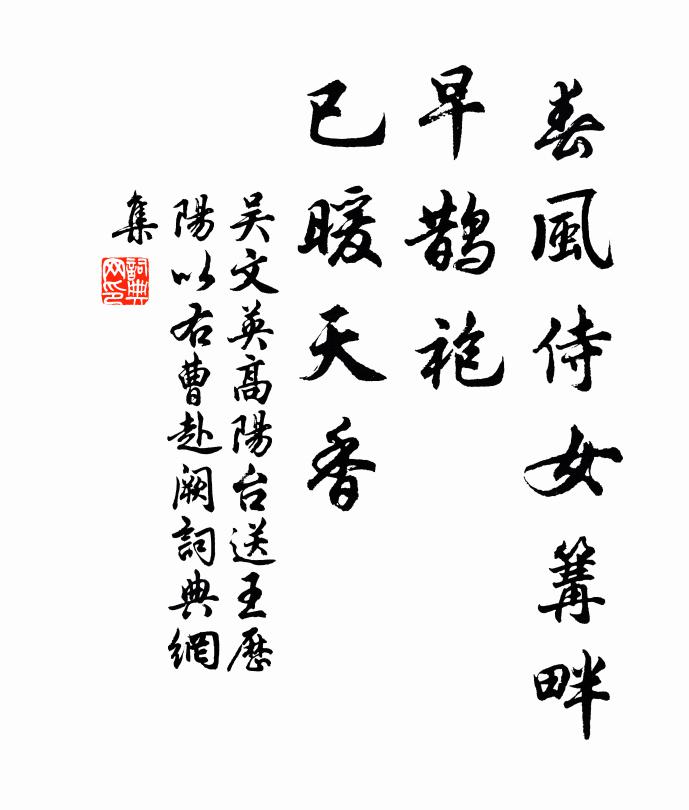 春風侍女篝畔
早鵲袍
已暖天香
吳文英高陽台送王歷
陽以右曹赴闕詞典網
集
詞典
网印